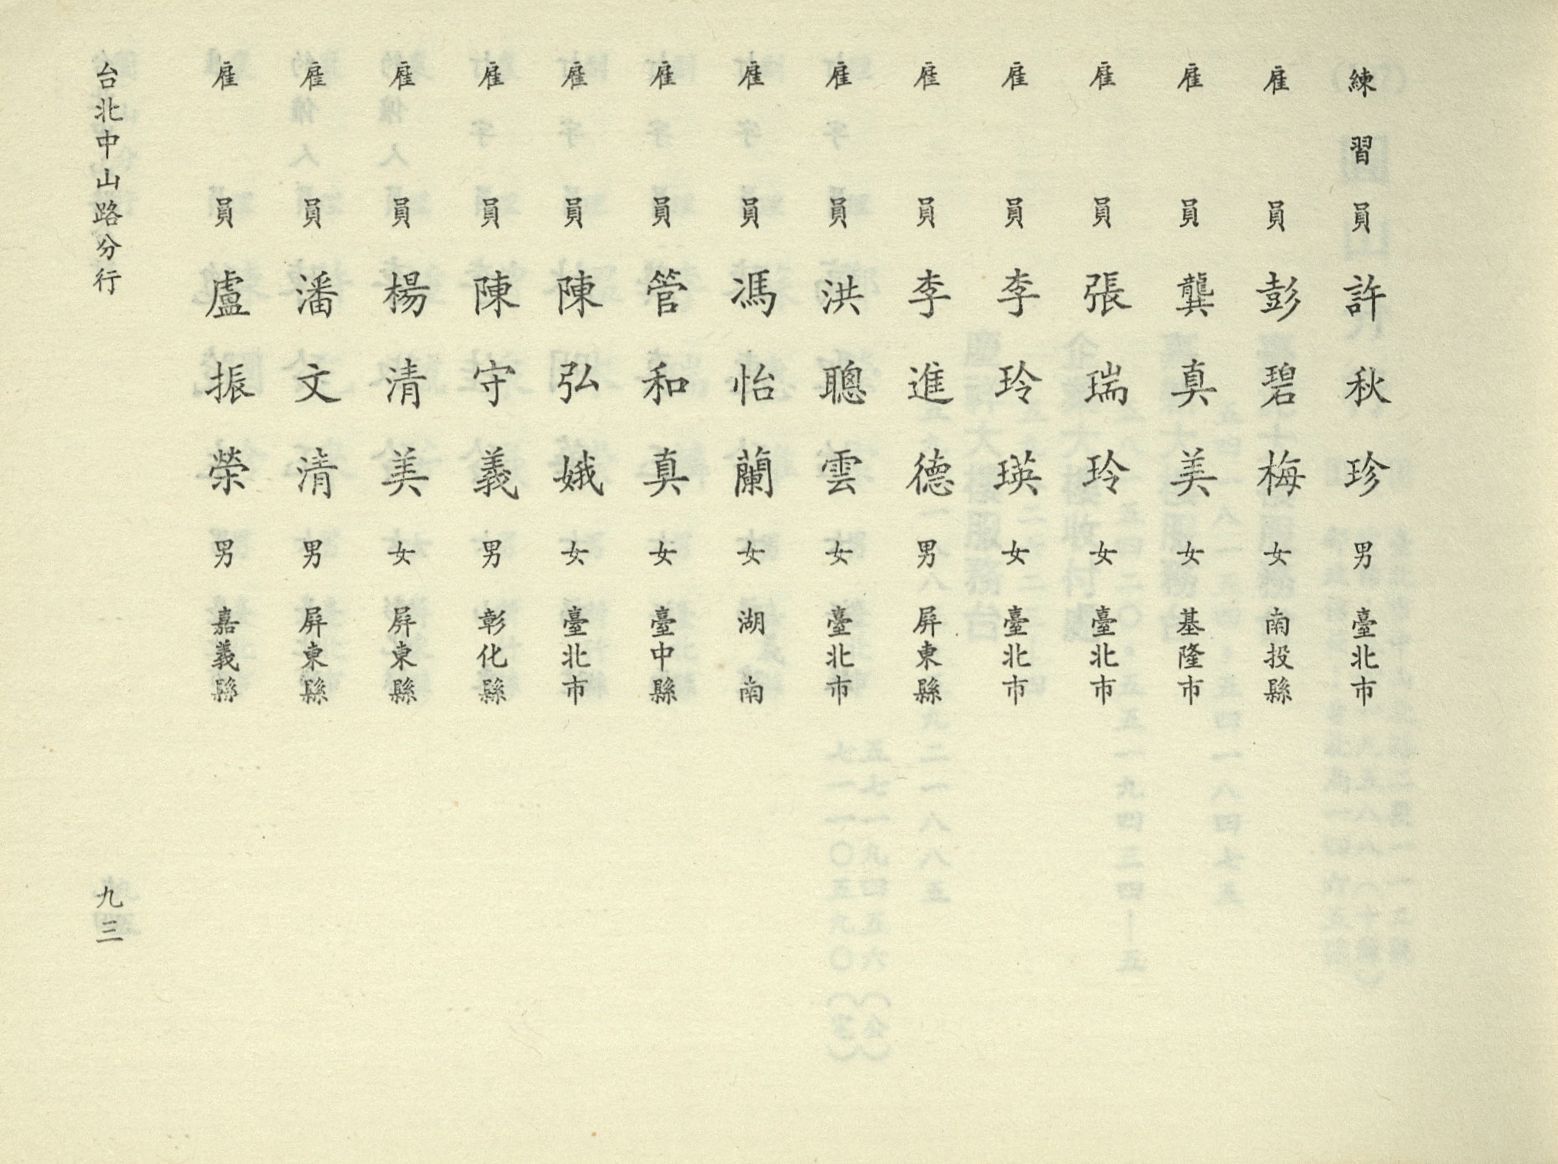 練習員 許秋珍 男 臺北市
雇員 彭碧梅 女 南投縣
雇員 龔真美 女 基隆市
雇員 張瑞玲 女 臺北市
雇員 李玲瑛 女 臺北市
雇員 李進德 男 屏東縣
雇員 洪聰雲 女 臺北市
雇員 馮怡蘭 女 湖南
雇員 管和真 女 臺中縣
雇員 陳弘娥 女 臺北市
雇員 陳守義 男 彰化縣
雇員 楊清美 女 屏東縣
雇員 潘文清 男 屏東縣
雇員 盧振榮 男 嘉義縣
台北中山路分行 九三